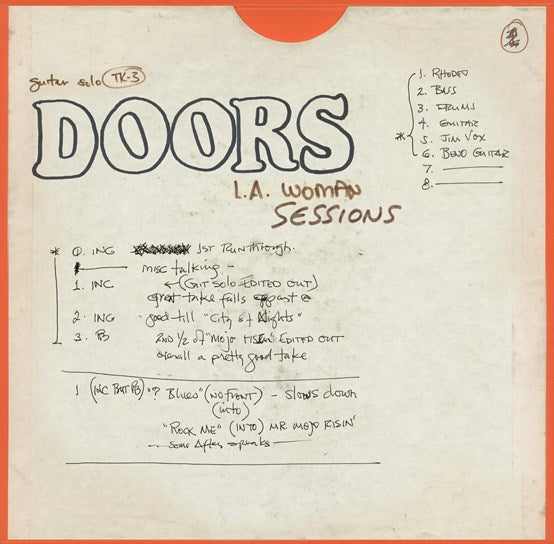 guitar solo TK-3
DOORS
L.A. WOMAN
SESSIONS
1. RHODES
2. BASS
3. DRUMS
4. GUITAR
* 5. JIM VOX
6. BEND GUITAR
7.
8.
* 0. INC 1ST RUNTHROUGH.
misc talking -
1. INC ←(GIT SOLO EDITED OUT)
great take falls apart @
2. INC good till "City of Nights"
3. PB 2ND 1/2 of "Mojo RISIN" EDITED OUT
overall a pretty good take
1 (INC BUT PB) "? BLUES" (NO FRONT) - slows down
(into)
"ROCK ME" (INTO) MR MOJO RISIN'
- some After speaks -